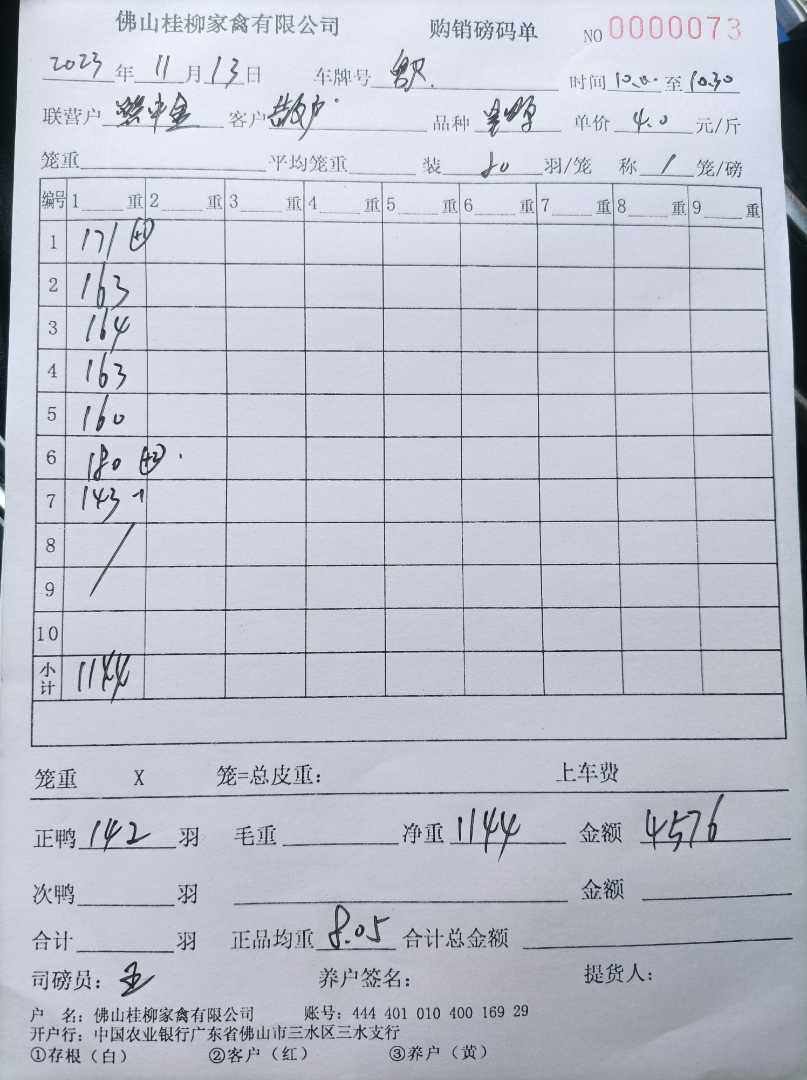 佛山桂柳家禽有限公司 购销磅码单 NO 0000073
2023 年 11 月 13 日 车牌号 时间 10.00 至 10.30
联营户 客户 散户 品种 单价 4.0 元/斤
笼重 平均笼重 装 80 羽/笼 称 1 笼/磅
编号 1 重 2 重 3 重 4 重 5 重 6 重 7 重 8 重 9 重
1 171 +1
2 163
3 164
4 163
5 160
6 180 +2
7 143 -1
8
9
10
小计 1144
笼重 X 笼=总皮重: 上车费
正鸭 142 羽 毛重 净重 1144 金额 4576
次鸭 羽 金额
合计 羽 正品均重 8.05 合计总金额
司磅员: 王 养户签名: 提货人:
户 名: 佛山桂柳家禽有限公司 账号: 444 401 010 400 169 29
开户行: 中国农业银行广东省佛山市三水区三水支行
①存根(白) ②客户(红) ③养户(黄)